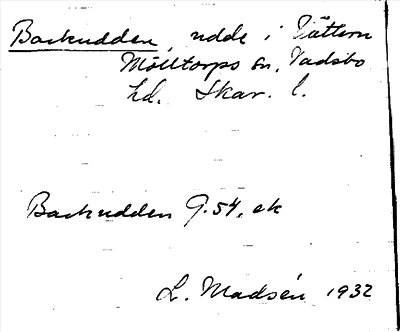 Backudden, udde i Vättern
Mölltorps sn, Vadsbo
hd. Skar. l.
Backudden G. 54, ek
L. Madsén 1932